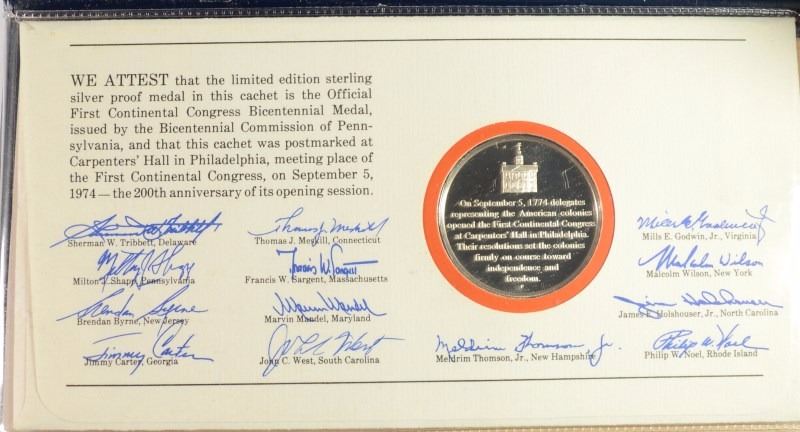 WE ATTEST that the limited edition sterling
silver proof medal in this cachet is the Official
First Continental Congress Bicentennial Medal,
issued by the Bicentennial Commission of Penn-
sylvania, and that this cachet was postmarked at
Carpenters' Hall in Philadelphia, meeting place of
the First Continental Congress, on September 5,
1974—the 200th anniversary of its opening session.
On September 5, 1774 delegates
representing the American colonies
opened the First Continental Congress
at Carpenters' Hall in Philadelphia.
Their resolutions set the colonies
firmly on course toward
independence and
freedom.
Sherman W. Tribbitt
Sherman W. Tribbett, Delaware
Thomas J. Meskill
Thomas J. Meskill, Connecticut
Mills E. Godwin Jr
Mills E. Godwin, Jr., Virginia
Milton J. Shapp
Milton J. Shapp, Pennsylvania
Francis W. Sargent
Francis W. Sargent, Massachusetts
Malcolm Wilson
Malcolm Wilson, New York
Brendan Byrne
Brendan Byrne, New Jersey
Marvin Mandel
Marvin Mandel, Maryland
Jim Holshouser
James E. Holshouser, Jr., North Carolina
Jimmy Carter
Jimmy Carter, Georgia
John C. West
John C. West, South Carolina
Meldrim Thomson, Jr.
Meldrim Thomson, Jr., New Hampshire
Philip W. Noel
Philip W. Noel, Rhode Island